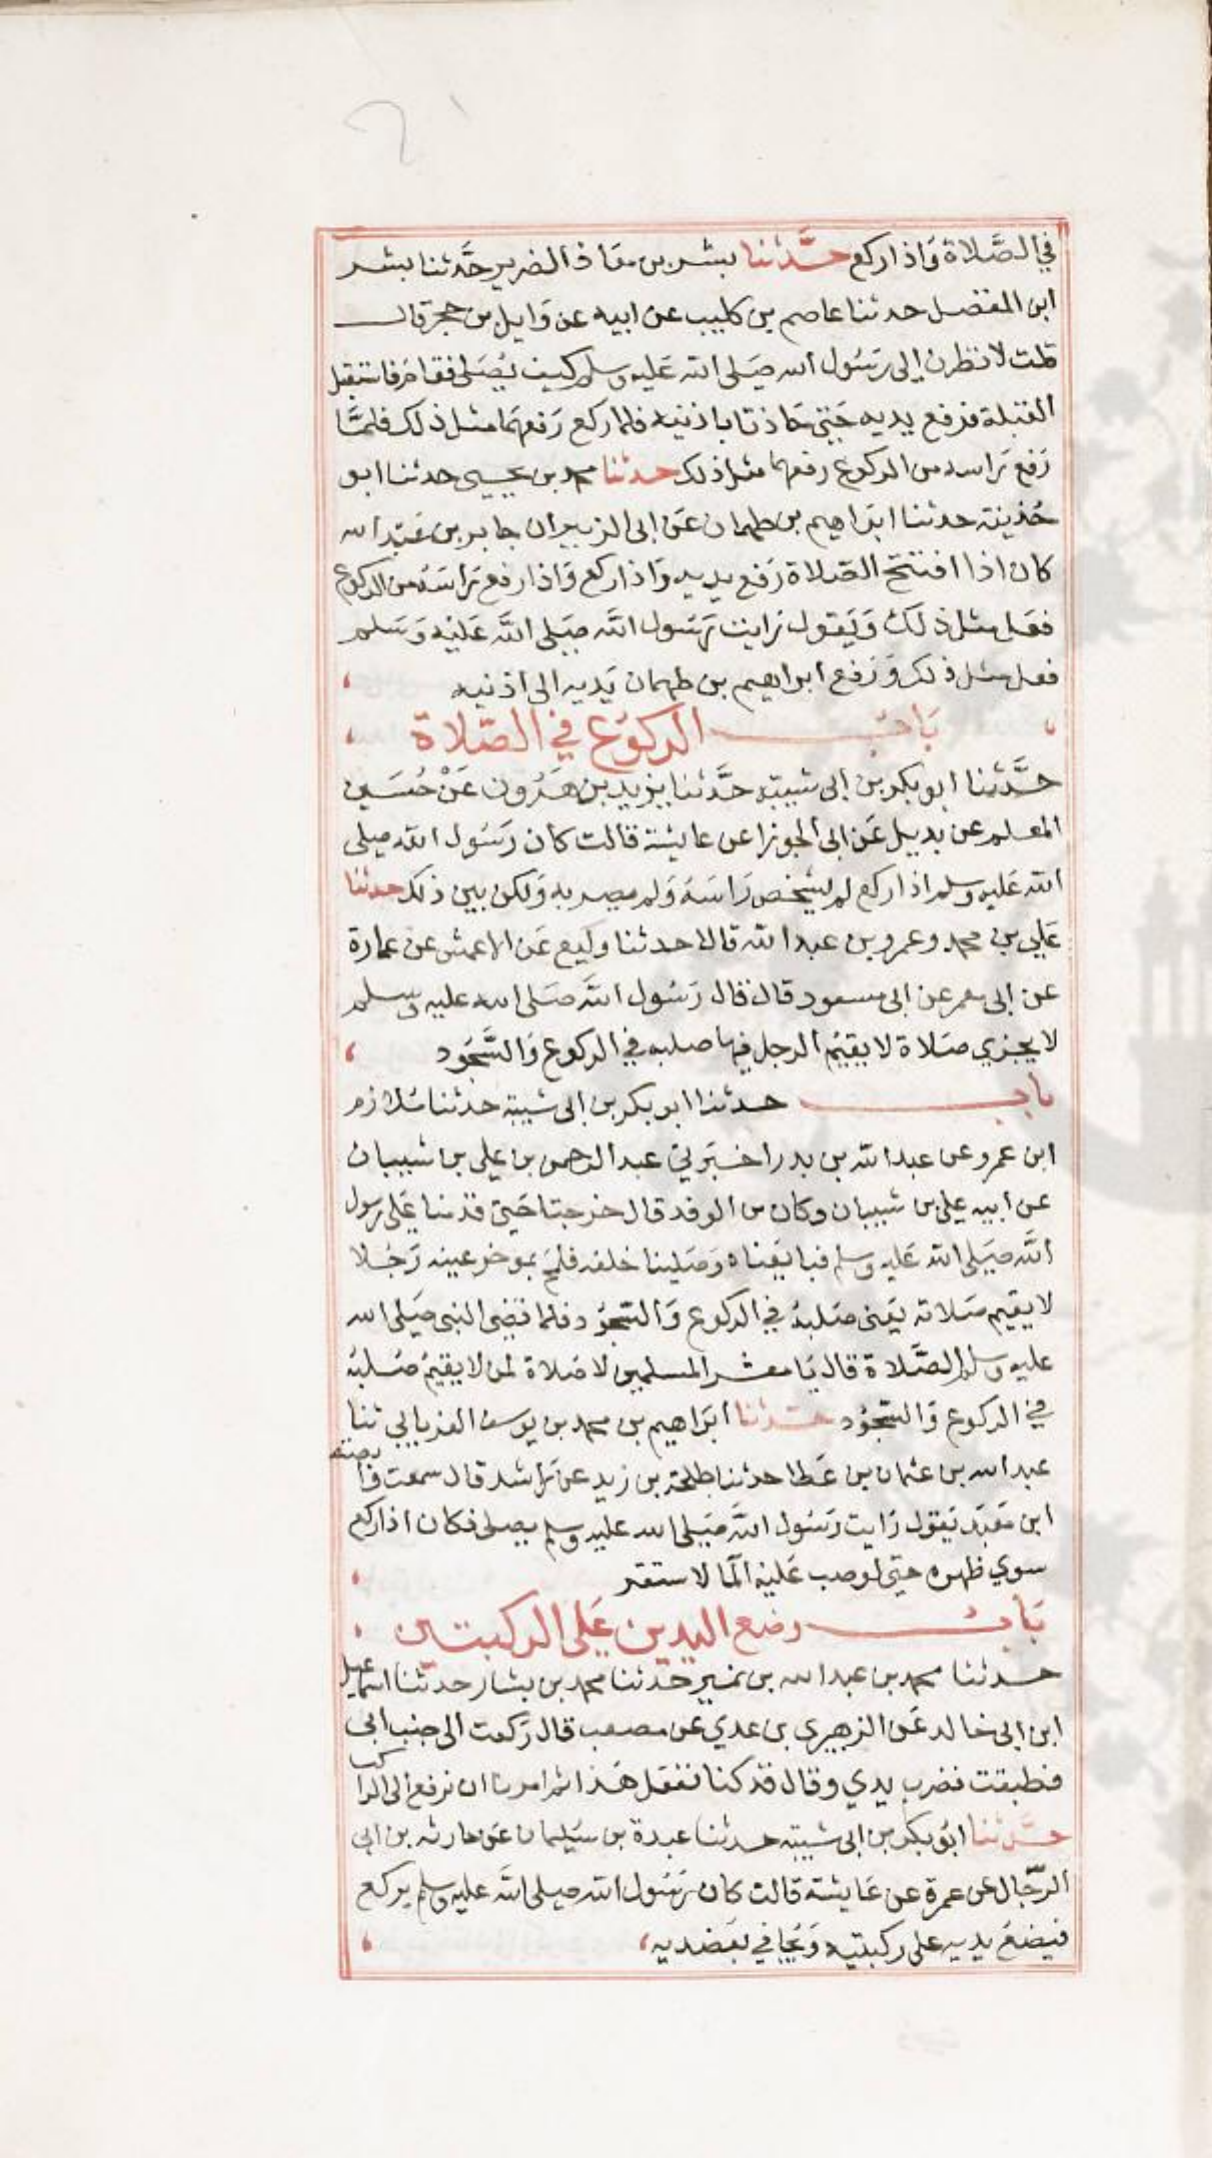 في الصَّلاة وَاذا ركع حَدَّثنا بشر بن معَاذ الضرير حَدَّثنا بشر
ابن المفضل حدثنا عاصم بن كليب عن ابيه عن وَايل بن حجر قال
قلت لانظرن إلى رَسُول الله صَلى الله عَليه وسلم كيف يُصَلي فقامَ فاستقبل
القبلة فرفع يديه حَتى حَاذتا باذنيه فلما ركع رَفعهمَا مثل ذلك فلمَّا
رَفع رَاسه من الركوع رفعهما مثل ذلك حدثنا محمد بن يحيى حدثنا ابو
حُذيفة حدثنا ابرَاهيم بن طهمان عَن ابي الزبير ان جابر بن عَبد الله
كان اذا افتتح الصَلاة رَفع يديه وَاذا ركع وَاذا رفع رَاسَه من الركوع
فعَل مثل ذلك وَيَقول رَايت رَسُول الله صَلى الله عَليْه وَسَلم
فعل مثل ذلك وَرَفع ابراهيم بن طهمان يَديه الى اذنيه
بَابُ الركوُع في الصَّلاة
حَدَّثنا ابو بكر بن ابي شيبة حَدَّثنا يزيد بن هَرُون عَنْ حُسَين
المعلم عن بديل عَن ابي الجوزا عن عايشة قالت كان رَسُول الله صلى
الله عَليه وسلم اذا ركع لم يشخص رَاسَهُ وَلم يصوبه وَلكن بين ذلك حدثنا
عَلي بن محمد وعمرو بن عبد الله قالا حدثنا وكيع عَن الاعمش عن عمارة
عن ابي معمر عن ابي مسعود قال قال رَسُول الله صَلى الله عليه وسلم
لا يجزي صَلاة لا يقيمُ الرجل فيها صلبه في الركوع وَالسُّجُود
باب حدثنا ابو بكر بن ابي شيبة حَدثنا مُلازم
ابن عمرو عن عبد الله بن بدر اخبَرني عبد الرحمن بن علي بن شيبان
عن ابيه علي بن شيبان وكان من الوفد قال خرجنا حَتى قدمنا عَلى رسول
الله صَلى الله عَليه وسلم فبايَعْناه وَصَلينا خلفه فلمَح بموخر عينه رَجُلا
لا يقيم صَلاته يَعني صَلبهُ في الركوع وَالسُّجُود فلما قضى النبي صَلى الله
عليه وسلم الصَّلاة قال يَا معشر المسلمين لا صَلاة لمن لا يقيمُ صُلبهُ
في الركوع وَالسُّجُود حَدَّثنا ابرَاهيم بن محمد بن يوسف الفريابي ثنا
عبد الله بن عثمان بن عَطا حدثنا طلحة بن زيد عن رَاشد قال سمعت وابصة
ابن مَعبَد يَقول رَايت رَسُول الله صَلى الله عليه وسلم يصلى فكان اذا ركع
سوي ظهره حتى لو صب عَليْه الما لاستقر
بَابُ وضع اليدين عَلى الركبتين
حدثنا محمد بن عبد الله بن نمير حَدثنا محمد بن بشار حدثنا اسماعيل
ابن ابي خالد عَن الزهيري بن عدي عن مصعب قال رَكعت الى جنب ابي
فطبقت فضرب يدي وقال قد كنا نفعَل هَذا ثم امرنا ان نرفع الى الراكب
حَدَّثنا ابُو بكر بن ابي شيبة حدثنا عبدة بن سُليمان عَن حارثه بن ابي
الرّجال عن عمرة عن عَايشة قالت كان رَسُول الله صلى الله عليه وسلم يركع
فيضعُ يديه على ركبتيه وَيجَافي بعَضديه